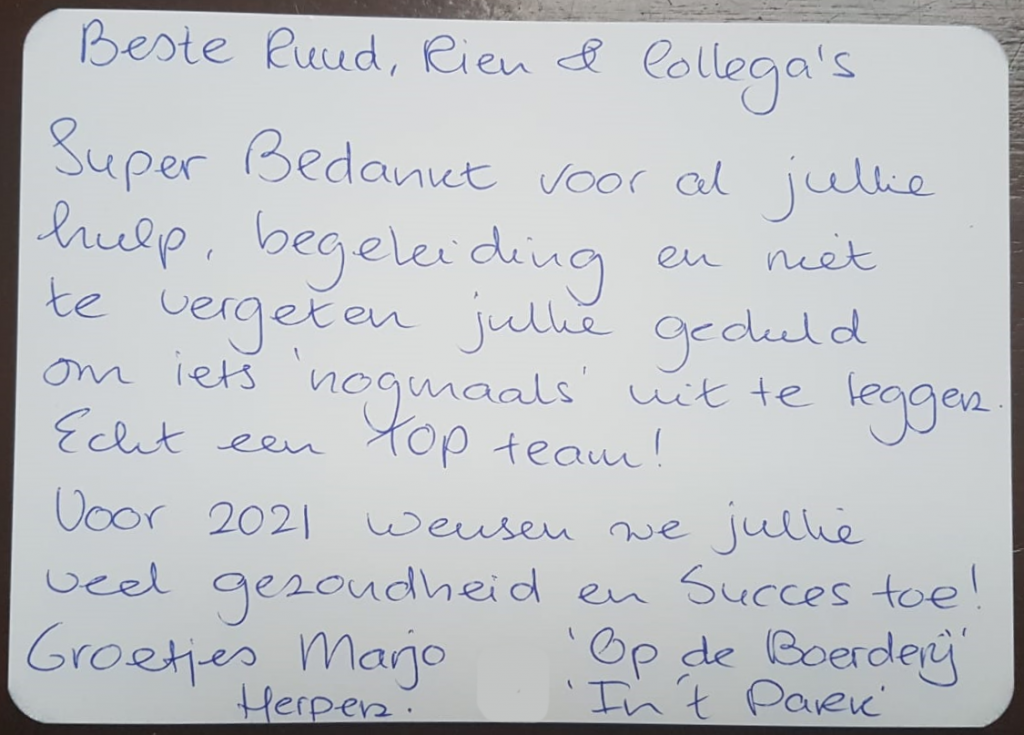 Beste Ruud, Rien & Collega's
Super Bedankt voor al jullie
hulp, begeleiding en niet
te vergeten jullie geduld
om iets 'nogmaals' uit te leggen.
Echt een TOP team!
Voor 2021 wensen we jullie
veel gezondheid en Succes toe!
Groetjes Marjo 'Op de Boerderij'
Herpen. 'In 't Park'